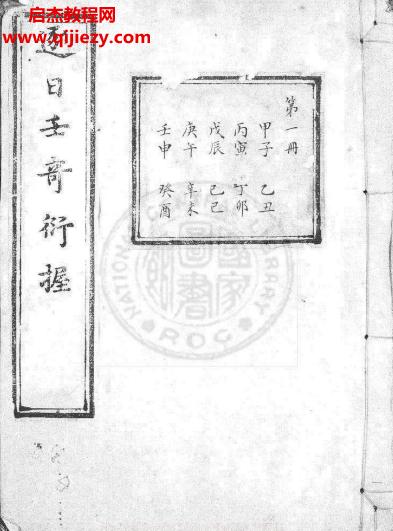 启杰教程网
www.qijiezy.com
第一冊
甲子 乙丑
丙寅 丁卯
戊辰 己巳
庚午 辛未
壬申 癸酉
逐日壬竒衍握
NATIONAL CENTRAL LIBRARY
ROC
國家圖書館